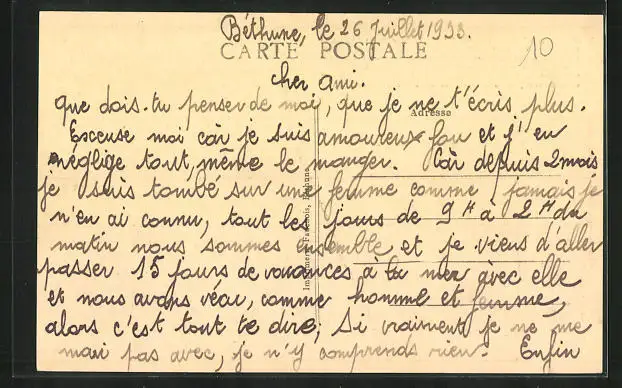 Béthune, le 26 Juillet 1933.
10
CARTE POSTALE
cher ami.
que dois-tu penser de moi, que je ne t'écris plus.
Adresse
Excuse moi car je suis amoureux fou et j'en
néglige tout, même le manger. Car depuis 2 mois
je suis tombé sur une femme comme jamais je
n'en ai connu, tout les jours de 9H à 2H du
matin nous sommes ensemble et je viens d'aller
passer 15 jours de vacances à la mer avec elle
et nous avons vécu, comme homme et femme,
alors c'est tout te dire, Si vraiment je ne me
mari pas avec, je n'y comprends rien. Enfin